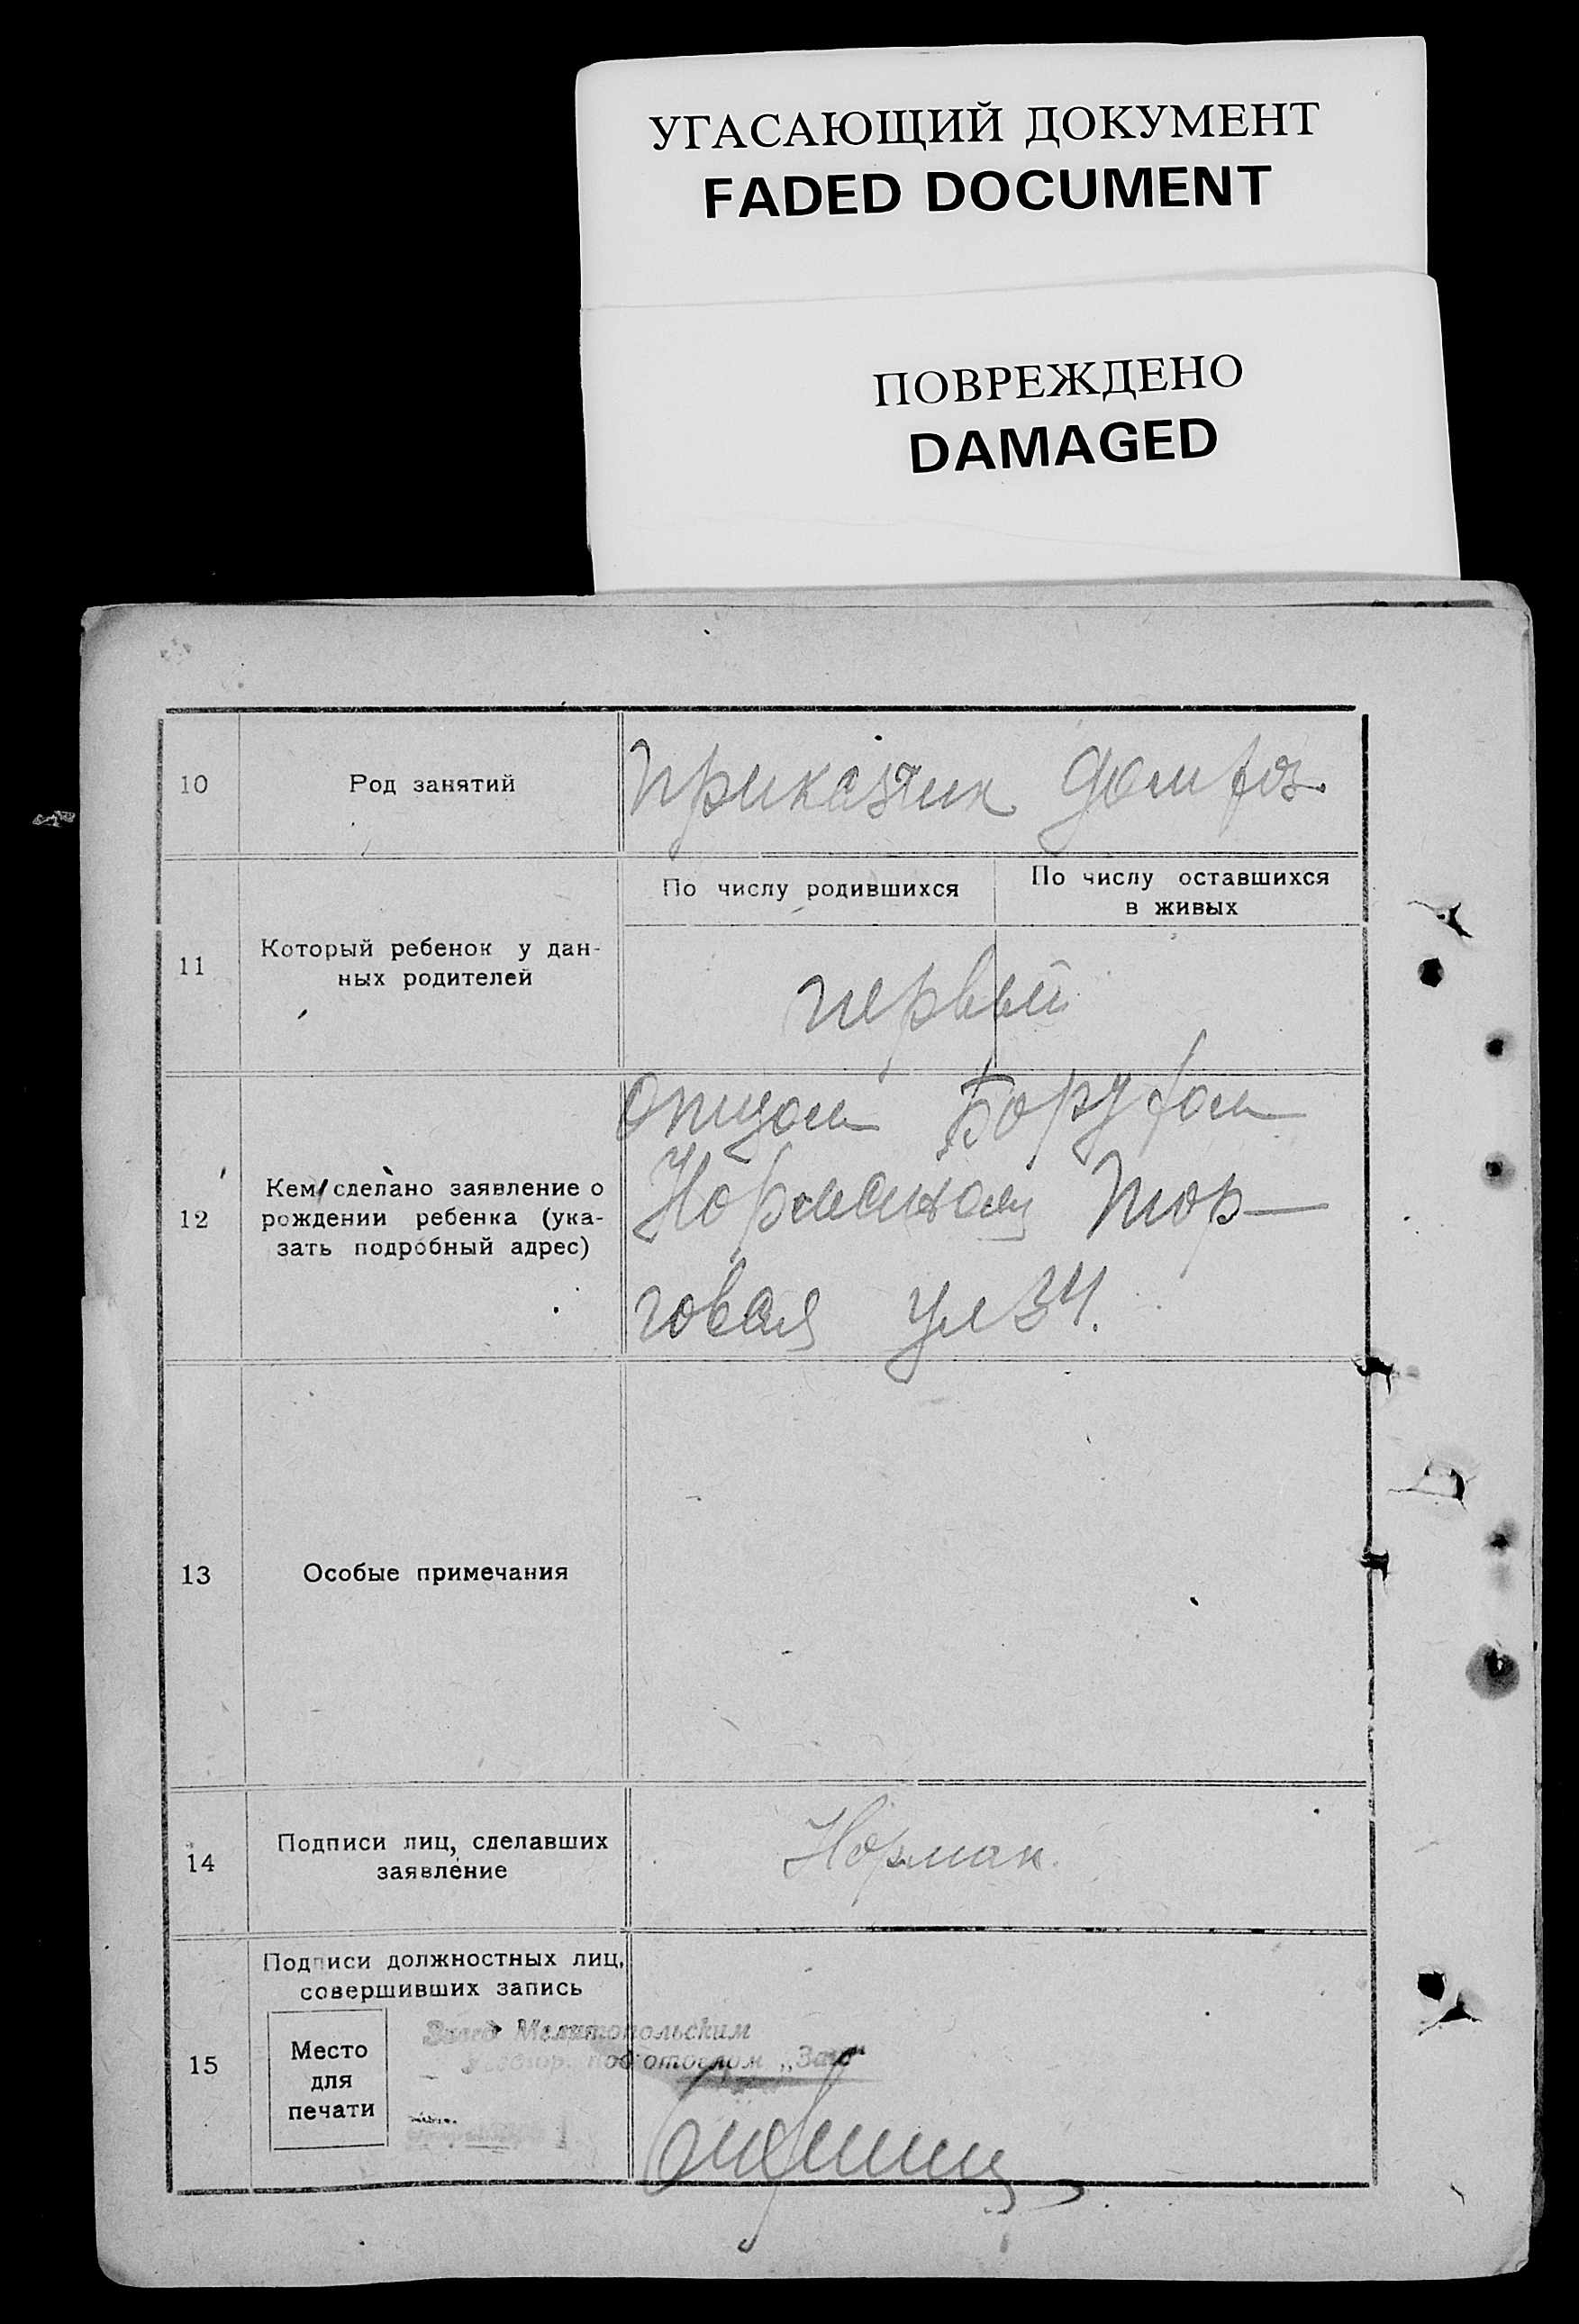 УГАСАЮЩИЙ ДОКУМЕНТ
FADED DOCUMENT
ПОВРЕЖДЕНО
DAMAGED
10 Род занятий приказчик домхоз.
По числу родившихся По числу оставшихся
в живых
11 Который ребенок у дан-
ных родителей
первый
отцом Борухом
12 Кем сделано заявление о
рождении ребенка (ука-
зать подробный адрес)
Норманом Тор-
говая ул 34.
13 Особые примечания
14 Подписи лиц, сделавших
заявление
Норман.
15 Подписи должностных лиц,
совершивших запись
Место
для
печати
Завед Мелитопольским
подотделом „Загс“